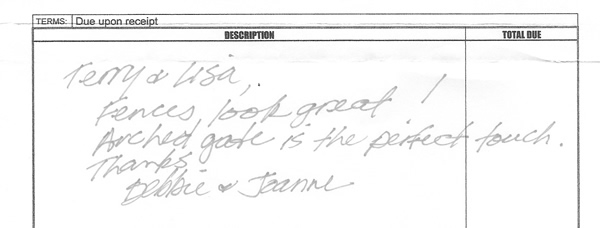 TERMS: Due upon receipt
DESCRIPTION TOTAL DUE
Terry & Lisa,
Fences look great!
Arched gate is the perfect touch.
Thanks,
Debbie & Joanne